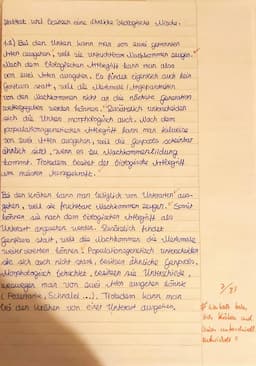 Habitat und besitzen eine ähnliche ökologische Nische.
1.2) Bei den Unken kann man von zwei getrennten
Arten ausgehen, weil sie unfruchtbare Nachkommen zeugen.
Nach dem biologischen Artbegriff kann man also
von zwei Arten ausgehen. Es findet eigentlich auch kein
Genfluss statt, weil die Merkmale
von den Nachkommen nicht an die nächste Generation
weitergegeben werden können. Zusätzlich unterscheiden
sich die Unken morphologisch auch. Nach dem
populationsgenetischen Artbegriff kann man teilweise
von zwei Arten ausgehen, weil die Genpools scheinbar
ähnlich sind, wenn es zu Nachkommenbildung
kommt. Trotzdem besitzt der biologische Artbegriff
am meisten
Bei den Krähen kann man lediglich von Unterarten aus-
gehen, weil sie fruchtbare Nachkommen zeugen. Somit
können sie nach dem biologischen Artbegriff als
Unterart angesehen werden. Zusätzlich findet
Genfluss statt, weil die Nachkommen die Merkmale
weiter vererben können. Populationsgenetisch unterscheiden
sie sich auch nicht stark, besitzen ähnliche Genpools.
Morphologisch betrachtet, besitzen sie Unterschiede,
weswegen man von zwei Arten ausgehen könnte
( , Schnabel ...). Trotzdem kann man
bei den Krähen von einer Unterart ausgehen.